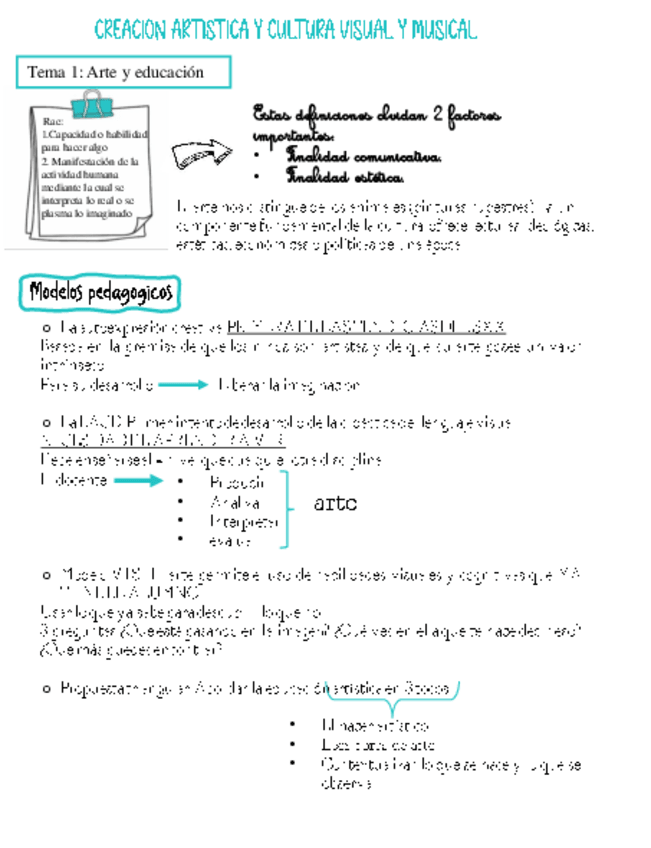 CREACION ARTISTICA Y CULTURA VISUAL Y MUSICAL
Tema 1: Arte y educación
Rae:
1.Capacidad o habilidad
para hacer algo
2. Manifestación de la
actividad humana
mediante la cual se
interpreta lo real o se
plasma lo imaginado
Estas definiciones olvidan 2 factores
importantes:
• Finalidad comunicativa.
• Finalidad estética.
El arte nos distingue de los animales (pinturas rupestres)
componente fundamental de la cultura ofrece lecturas ideológicas,
estéticas, económicas o políticas de una época
Modelos pedagogicos
La autoexpresión creativa
Basado en la premisa de que los niños son artistas y de que su arte posee un valor
intrínseco
Para su desarrollo liberar la imaginación
Primer intento de desarrollo de la didáctica del lenguaje visual
Debe enseñarse al = nivel que cualquier otra disciplina
El docente
• Producir
• Analiza
• Interpreta
• evalúa
arte
Modelo El arte permite el uso de habilidades visuales y cognitivas que
Usar lo que ya sabe para descubrir lo que no
3 preguntas ¿Qué está pasando en la imagen? ¿Qué ves en el a que te hace decir eso?
¿Qué más puedes encontrar?
Propuesta triangular Abordar la educación artística en 3 focos
• El hacer artístico
• obra de arte
• Contextualizar lo que se hace y lo que se
observa